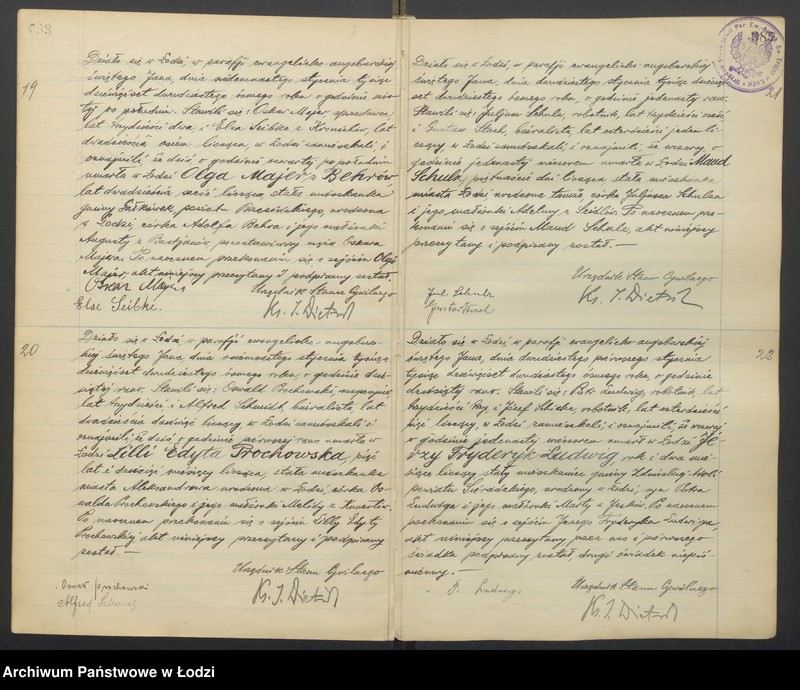 838
19
Działo się w Łodzi w parafji ewangelicko-augsburskiej
świętego Jana, dnia siedemnastego stycznia tysiąc
dziewięćset dwudziestego ósmego roku o godzinie
po południu. Stawili się: Oskar Majer,
lat trzydzieści dwa, i Else Seibke z lat
dwadzieścia osiem licząca, w Łodzi zamieszkali, i
oznajmili że dziś o godzinie czwartej po południu
umarła w Łodzi Olga Majer z Behrów
lat dwadzieścia sześć licząca, stała mieszkanka
gminy powiatu Brzezińskiego, urodzona
w Łodzi, córka Adolfa Behra i jego małżonki
Augusty z pozostawiwszy męża Oskara
Majera. Po naocznem przekonaniu się o zejściu Olgi
Majer, akt niniejszy przeczytany i podpisany został.
Oskar Majer Urzędnik Stanu Cywilnego
Else Seibke. Ks. J. Dietrich
20
Działo się w Łodzi, w parafji ewangelicko-augsburs-
kiej świętego Jana, dnia osiemnastego stycznia tysiąc
dziewięćset dwudziestego ósmego roku, o godzinie dzie-
siątej rano. Stawili się: Oswald Prochowski,
lat trzydzieści i Alfred Schmidt, biuralista, lat
dwadzieścia dziewięć liczący, w Łodzi zamieszkali i
oznajmili, że dziś o godzinie pierwszej rano umarła w
Łodzi Lilli Edyta Prochowska, pięć
lat i miesięcy licząca, stała mieszkanka
miasta Aleksandrowa urodzona w Łodzi córka Os-
walda Prochowskiego i jego małżonki z
Po naocznem przekonaniu się o zejściu Lilly Edyty
Prochowskiej akt niniejszy przeczytany i podpisany
został. —
Urzędnik Stanu Cywilnego
Ks. J. Dietrich
Alfred
21
Działo się w Łodzi w parafji ewangelicko-augsburskiej
świętego Jana, dnia dwudziestego stycznia tysiąc dziewięć-
set dwudziestego ósmego roku, o godzinie jedenastej rano.
Stawili się: Juljan Schulz, robotnik, lat trzydzieści sześć,
i Gustaw biuralista, lat czterdzieści jeden li-
czący w Łodzi zamieszkali i oznajmili, że wczoraj, o
godzinie jedenastej wieczorem umarła w Łodzi Maud
Schulz, piętnaście dni licząca stała mieszkanka
miasta Łodzi urodzona tamże, córka Juljana Schulza
i jego małżonki Adeliny z Seidlów. Po naocznem prze-
konaniu się o zejściu Maud Schulz, akt niniejszy
przeczytany i podpisany został. —
Urzędnik Stanu Cywilnego
Jul. Schulz Ks. J. Dietrich
22
Działo się w Łodzi, w parafji ewangelicko-augsburskiej
świętego Jana, dnia dwudziestego pierwszego stycznia
tysiąc dziewięćset dwudziestego ósmego roku, o godzinie
dziesiątej rano. Stawili się: Piotr Ludwig, robotnik, lat
trzydzieści trzy i Józef robotnik, lat czterdzieści
pięć liczący, w Łodzi zamieszkali, i oznajmili, że wczoraj
o godzinie jedenastej wieczorem umarł w Łodzi Je-
rzy Fryderyk Ludwig, rok i dwa mie-
siące liczący, stały mieszkaniec gminy Zduńska Wola
powiatu Sieradzkiego, urodzony w Łodzi, syn Piotra
Ludwiga i jego małżonki Marty z Po naocznem
przekonaniu się o zejściu Jerzego Fryderyka Ludwiga,
akt niniejszy przeczytany, przez nas i pierwszego
świadka podpisany został drugi świadek niepiś-
mienny. —
P. Ludwig Urzędnik Stanu Cywilnego
Ks. J. Dietrich
Archiwum Państwowe w Łodzi